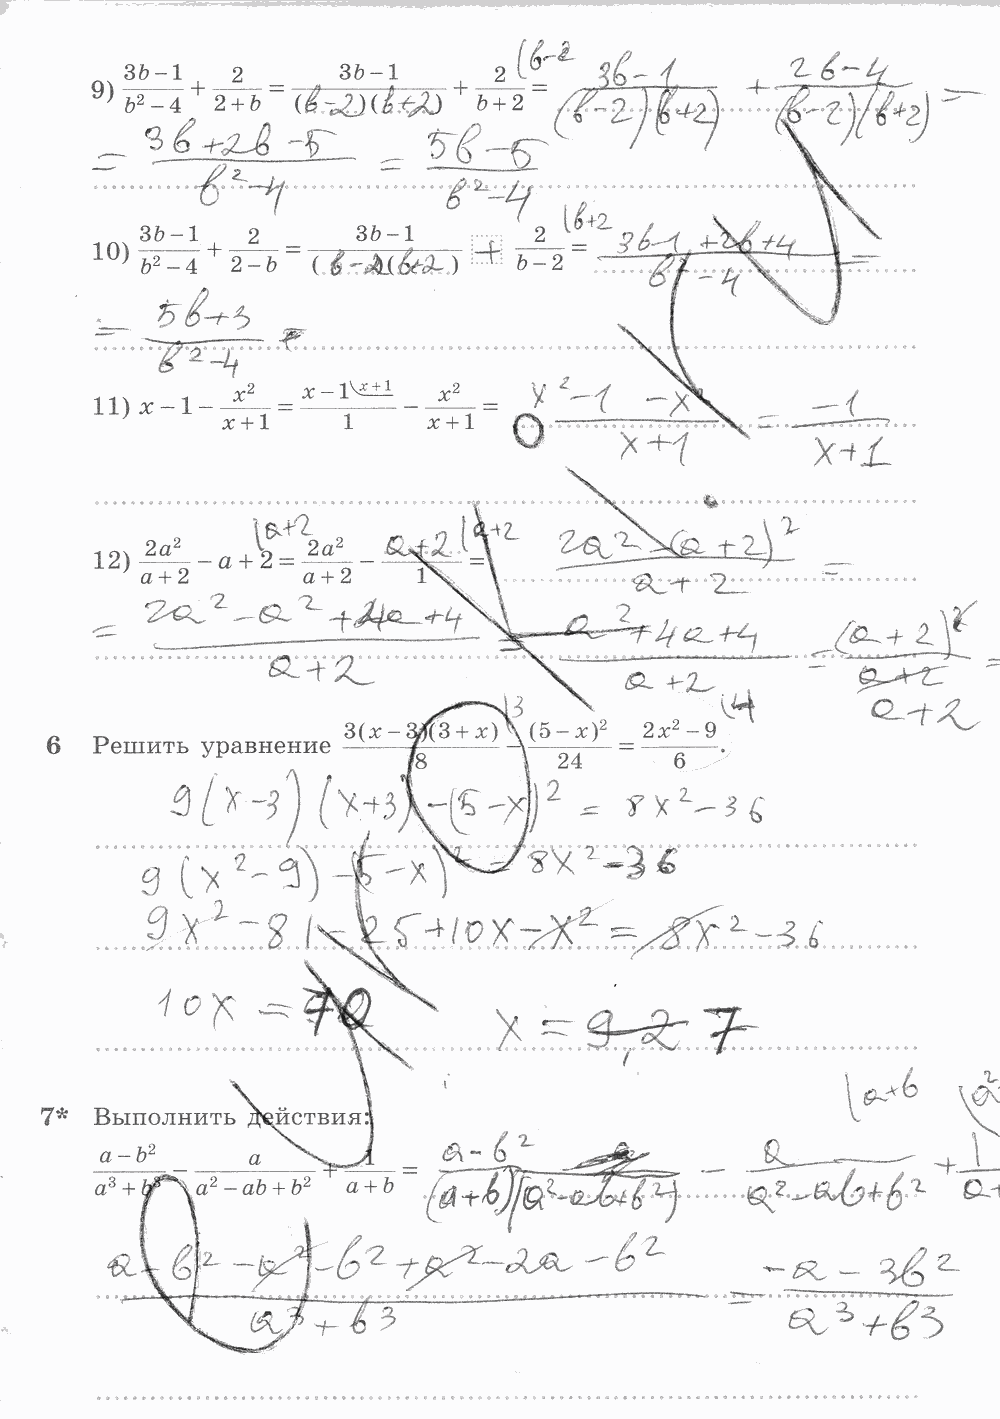 9) (3b−1)/(b²−4) + 2/(2+b) = (3b−1)/((b−2)(b+2)) + 2/(b+2) (b−2 = (3b−1)/((b−2)(b+2)) + (2b−4)/((b−2)(b+2)) =
= (3b+2b−5)/(b²−4) = (5b−5)/(b²−4)
10) (3b−1)/(b²−4) + 2/(2−b) = (3b−1)/((b−2)(b+2)) + 2/(b−2) (b+2 = (3b−1+2b+4)/(b²−4) =
= (5b+3)/(b²−4)
11) x−1− x²/(x+1) = (x−1)/1 (x+1 − x²/(x+1) = (x²−1−x²)/(x+1) = −1/(x+1)
12) 2a²/(a+2) −a+2 (a+2 = 2a²/(a+2) − (a+2)/1 (a+2 = (2a²−(a+2)²)/(a+2) =
= (2a²−a²+4a+4)/(a+2) = (a²+4a+4)/(a+2) = (a+2)²/(a+2) =
a+2
6 Решить уравнение 3(x−3)(3+x)/8 (3 − (5−x)²/24 = (2x²−9)/6 (4.
9(x−3)(x+3)−(5−x)² = 8x²−36
9(x²−9)−(5−x)² = 8x²−36
9x²−81−25+10x−x² = 8x²−36
10x = 70 x = 9,2 7
7* Выполнить действия: (a+b (a²
(a−b²)/(a³+b³) − a/(a²−ab+b²) + 1/(a+b) = (a−b²)/((a+b)(a²−ab+b²)) − a/(a²−ab+b²) + 1/(a+
(a−b²−a²−b²+a²−2a−b²)/(a³+b³) = (−a−3b²)/(a³+b3)